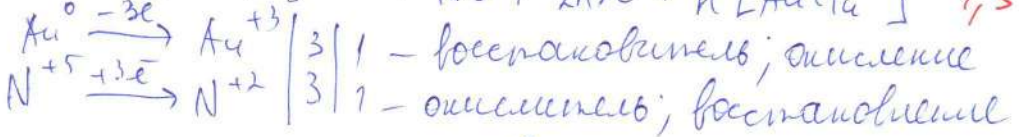 Au⁰ —3ē→ Au⁺³ | 3 | 1 – восстановитель; окисление
N⁺⁵ +3ē→ N⁺² | 3 | 1 – окислитель; восстановление